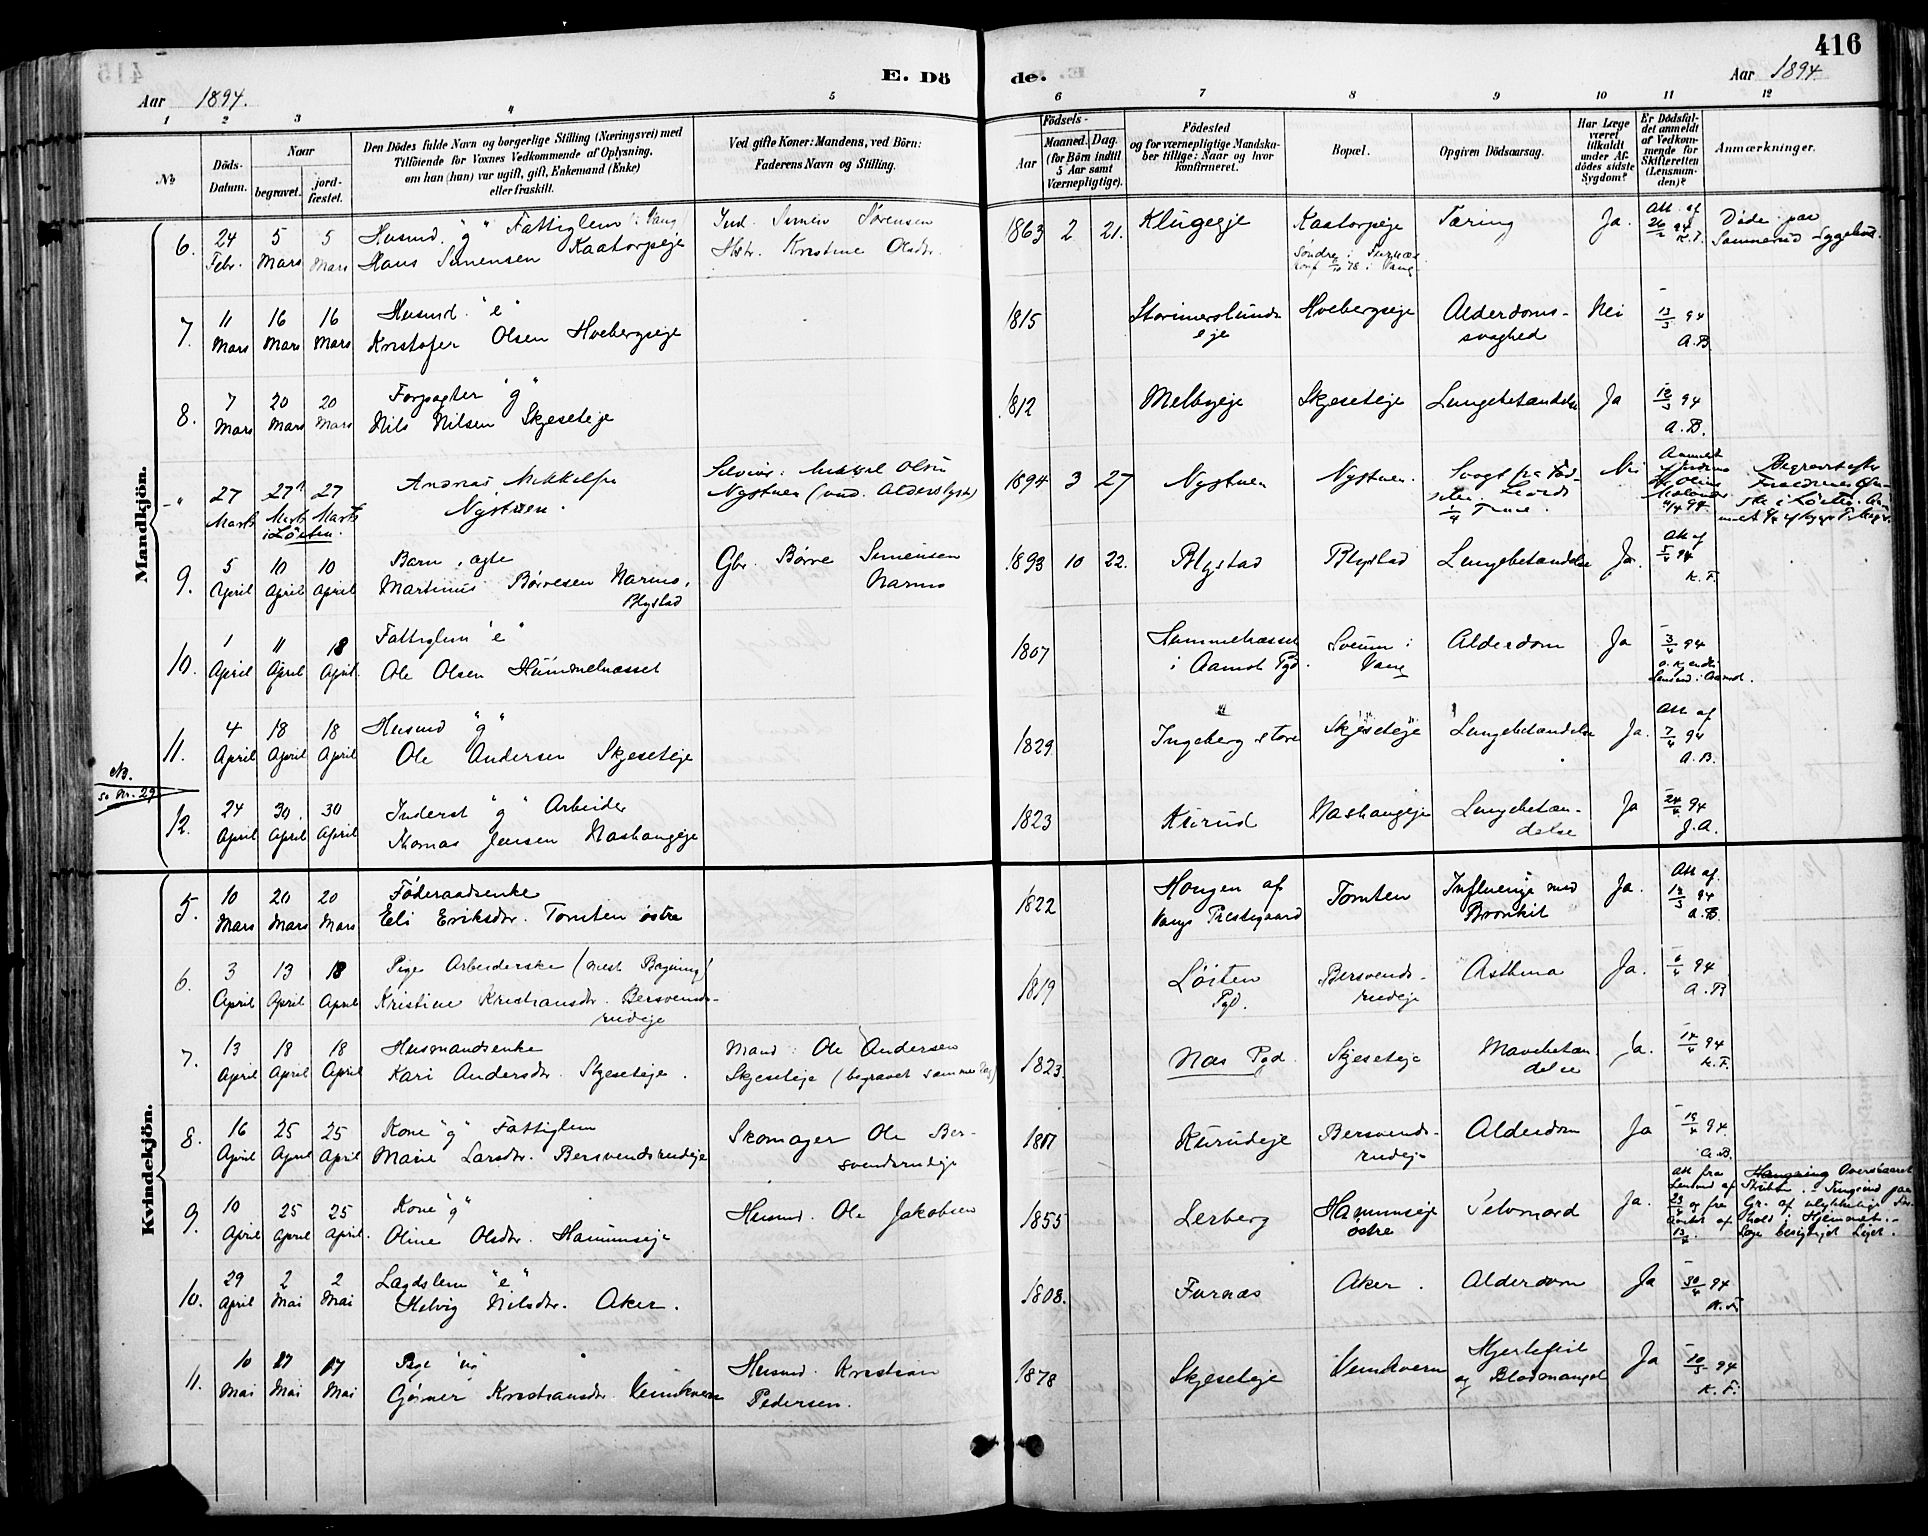 416
E. Dö de.
Aar 1894.
Aar 1894.
1 2 3 4 5 6 7 8 9 10 11 12
№
Döds-Datum.
Naar
begravet.
jord-fæstet.
Den Dödes fulde Navn og borgerlige Stilling (Næringsvei) med
Tilföiende for Voxnes Vedkommende af Oplysning,
om han (hun) var ugift, gift, Enkemand (Enke)
eller fraskilt.
Ved gifte Koner: Mandens, ved Börn:
Faderens Navn og Stilling.
Födsels-
Aar
Maaned. Dag.
(for Börn indtil
5 Aar samt
Værnepligtige).
Födested
og for værnepligtige Mandska-
ber tillige: Naar og hvor
konfirmeret.
Bopæl.
Opgiven Dödsaarsag.
Har Læge
været
tilkaldt
under Af-
dödes sidste
Sygdom?
Er Dödsfal-
det anmeldt
af Vedkom-
mende for
Skifteretten
(Lensman-
den)?
Anmærkninger.
Mandkjön.
6. 24 Febr. 5 Mars 5 Mars
Husmd. "g" Fattiglem i Vang
Hans Simensen Kaatorpseje
Ind. Simen Sörensen
Hstr. Kristine Olsdtr.
1863 2 21. Klugeje Kaatorpseje Tæring Ja. Att. af 26/2 94 K.F.
Söndre i Furnæs
Konf. 6/10 78 i Vang
Döde paa
Sannerud Sygehus.
7. 11 Mars 16 Mars 16 Mars
Husmd. "e"
Kristofer Olsen Hvebergseje
1815 Storimerslunds eje Hvebergseje Alderdoms-svaghed Nei 13/3 94 A.B.
8. 7 Mars 20 Mars 20 Mars
Forpagter "g"
Nils Nilsen Skjeseteje
1812 Melbyeje Skjeseteje Lungebetændelse Ja 12/3 94 A.B.
-"- 27 Marts 27 Marts 27 Marts
i Löiten.
Andreas Mikkelsen
Nystuen.
Selveier: Mikkel Olsen
Nystuen (ved Alderslyst)
1894 3 27 Nystuen Nystuen. Svagt fra Föd-selen. Nei
Begravet efter
i Löiten.
9. 5 April 10 April 10 April
Barn, ægte
Martinus Börresen Narmo,
Blystad
Gbr. Börre Simensen
Narmo
1893 10 22. Blystad Blystad Lungebetændelse Ja. Att af 5/4 94 K.F.
10. 1 April 11 April 18 April
Fattiglem "e"
Ole Olsen Hummelnæsset
1807 Hummelnæsset i Aamot Pgd. Sveum i Vang Alderdom Ja 3/4 94
Lensmd. i Aamot.
11. 4 April 18 April 18 April
Husmd "g"
Ole Andersen Skjeseteje
1829 Ingeberg store Skjeseteje Lungebetændelse Ja. Att af 7/4 94 A.B.
NB.
se Nr. 29
12. 24 April 30. April 30 April
Inderst "g" Arbeider
Thomas Jensen Nashaugeje
1823 Kurud Nashaugeje Lungebetæn-delse Ja 24/4 94 J.A.
Kvindekjön.
5. 10 Mars 20 Mars 20 Mars
Föderaadsenke
Eli Eriksdtr. Tomten östre
1822 Hougen af Vangs Prestegaard Tomten Influenza med Bronkit Ja. Att af. 13/3 94 A.B.
6. 3 April 13 April 18 April
Pige Arbeiderske (mest Bagning)
Kristine Kristiansdtr. Bersvends-
rudeje
1819 Löiten Pgd. Bersvends-rudeje Asthma Ja. 6/4 94 A.B
7. 13 April 18 April 18 April
Husmandsenke
Kari Andersdtr. Skjeseteje.
Mand: Ole Andersen
Skjeseteje (begravet samme Dag)
1823. Næs Pgd. Skjeseteje Mavebetæn-delse Ja. 14/4 94 K.F.
8. 16 April 25 April 25 April
Kone "g" Fattiglem
Marie Larsdtr. Bersvendsrudeje
Skomager Ole Ber-
svendsrudeje
1817 Kurudeje Bersvends-rudeje Alderdom Ja 19/4 94. A.B.
9. 10 April 25 April 25 April.
Kone "g"
Oline Olsdtr. Hammseje
Husmd. Ole Jakobsen
1855 Lerberg Hammseje östre Selvmord Ja. Att fra Lensmd af 23/4 og fra
Overskaaret
Struben.
Gr. af ulykkelige For-
hold i Hjemmet.-
Læge besigtiget Liget.
10. 29 April 2 Mai 2 Mai
Lægdslem "e"
Helvig Nilsdtr. Aker.
1808. Furnæs Aker. Alderdom Ja 30/4 94 K.F.
11. 10 Mai 17 Mai 17 Mai
Pige "ug"
Gjörner Kristiansdtr. Venkvern
Husmd. Kristian
Pedersen.
1878 Skjeseteje Venkvern Hjertefeil og Blodmangel Ja 10/5 94 K.F.